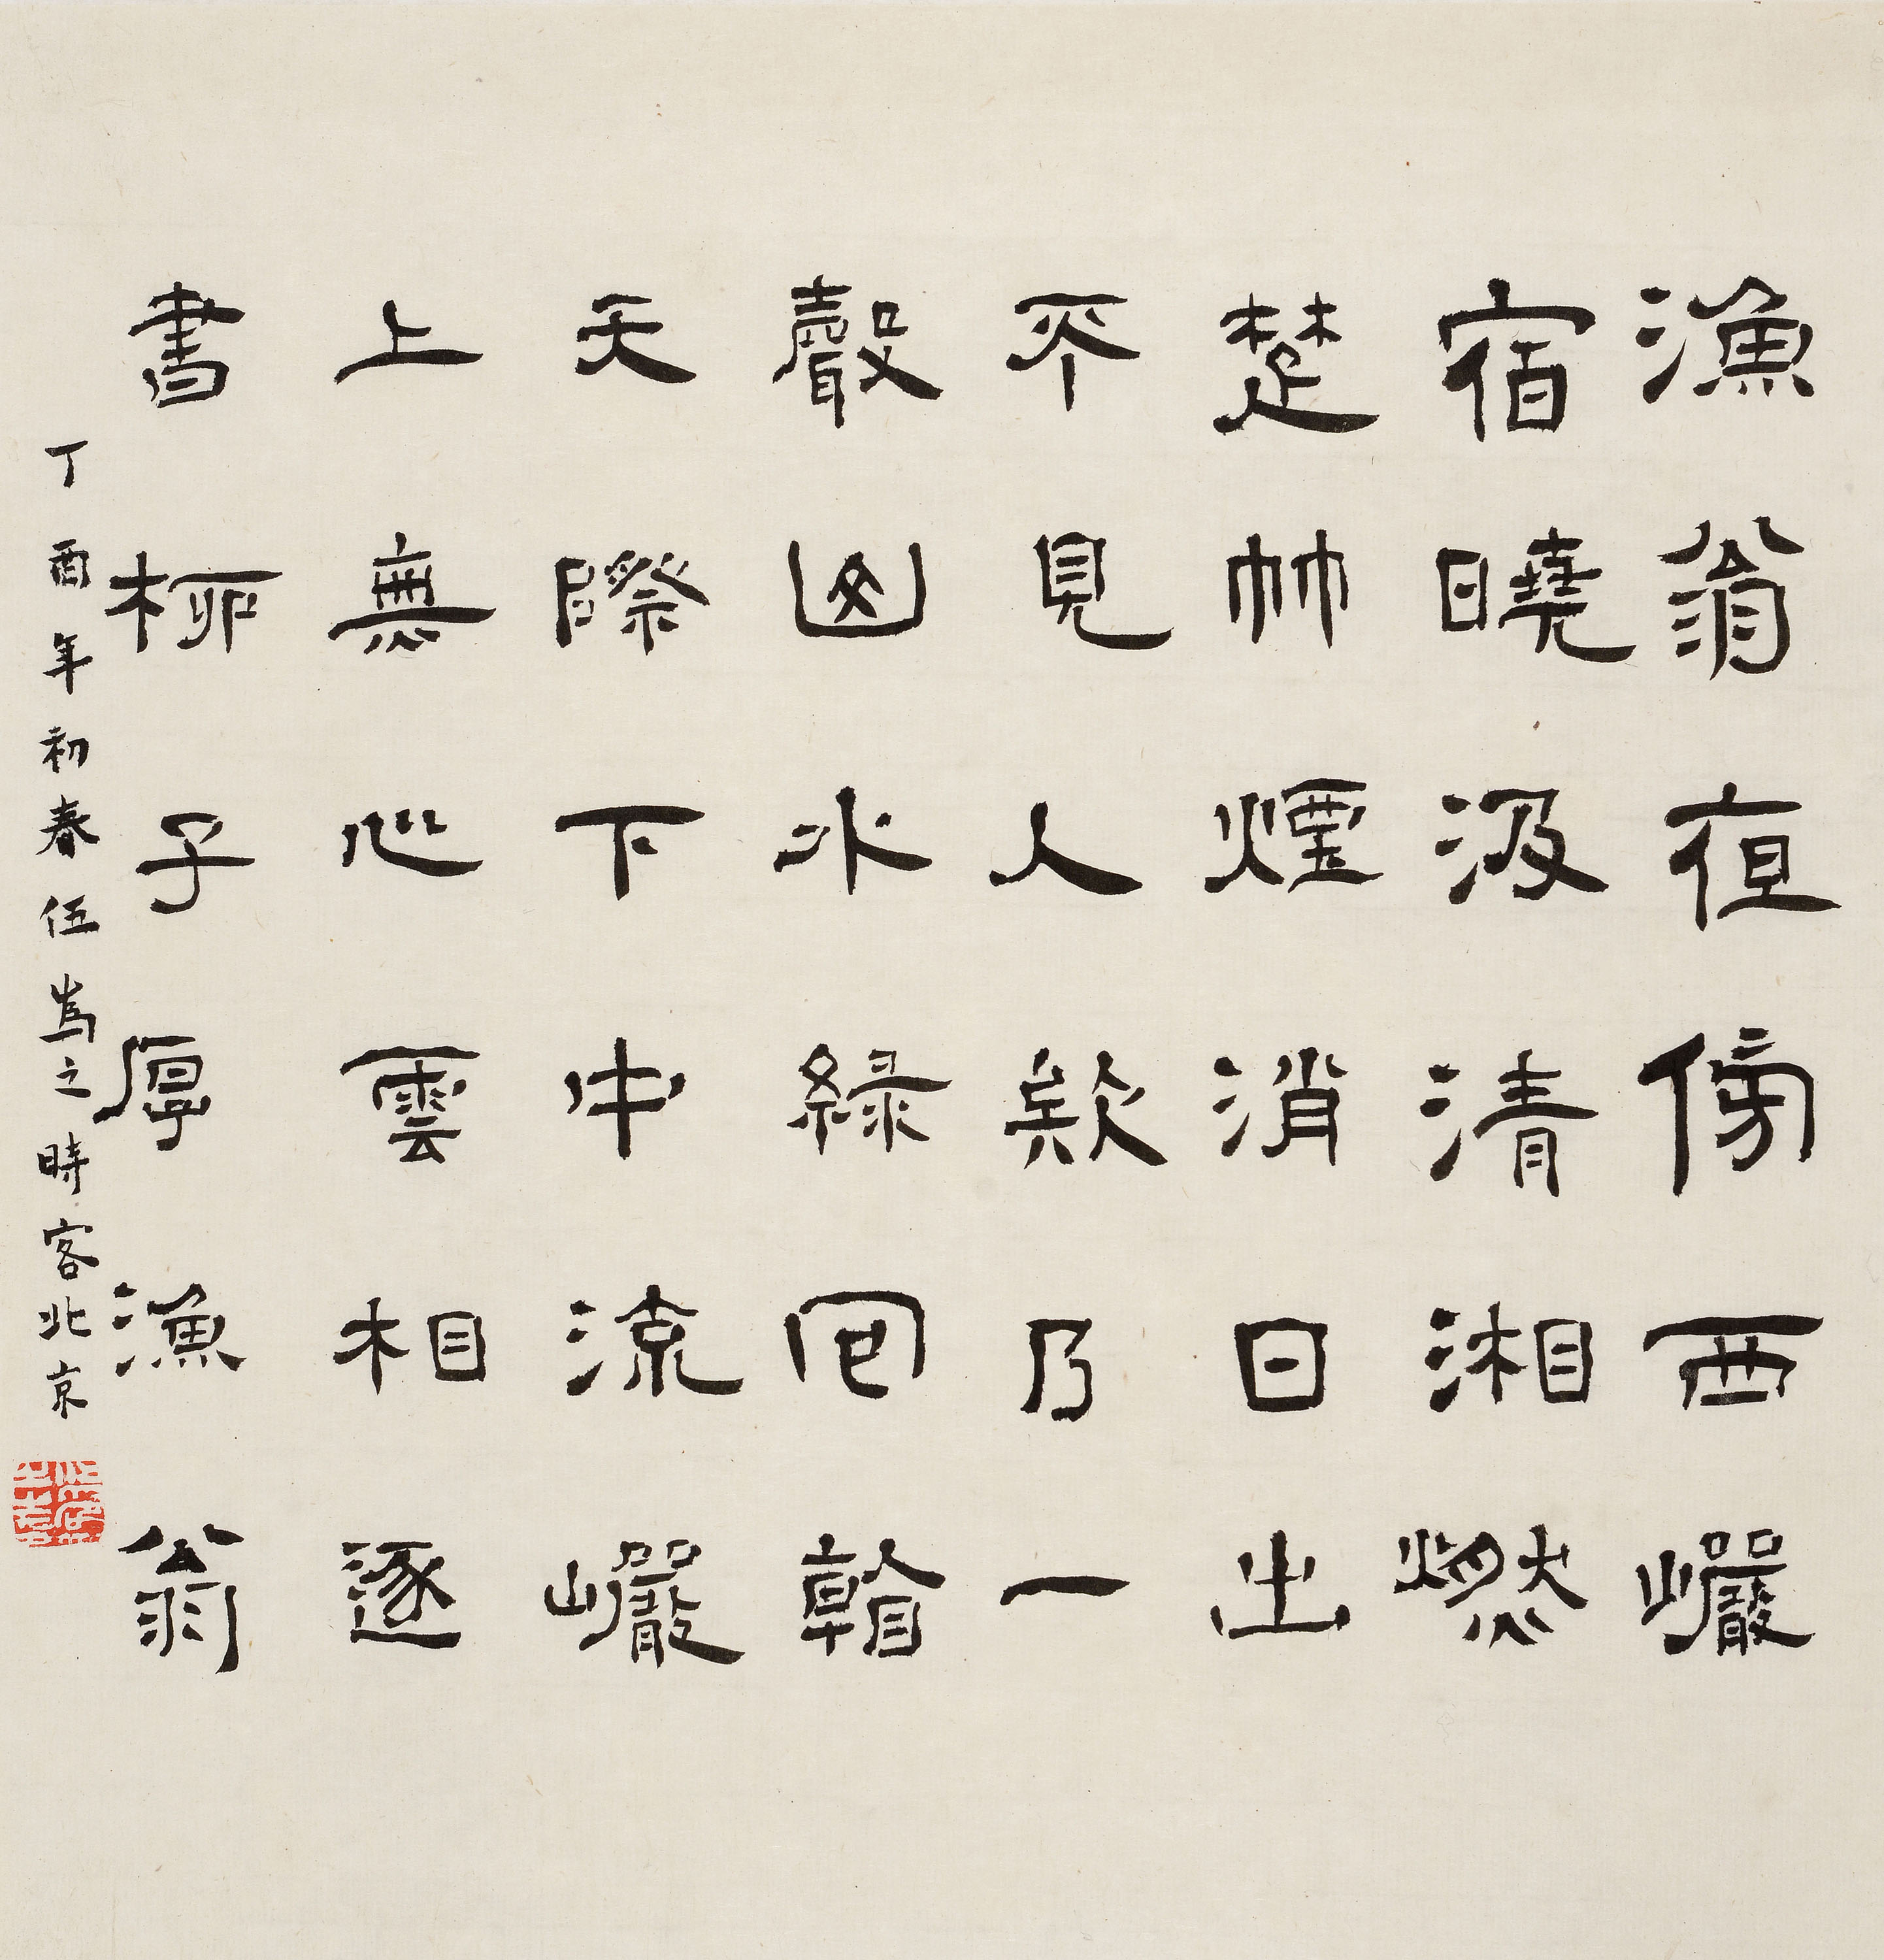 漁翁夜傍西巗
宿曉汲清湘燃
楚竹煙消日出
不見人欸乃一
聲山水綠回看
天際下中流巗
上無心雲相逐
書柳子厚漁翁
丁酉年初春伍之時客北京